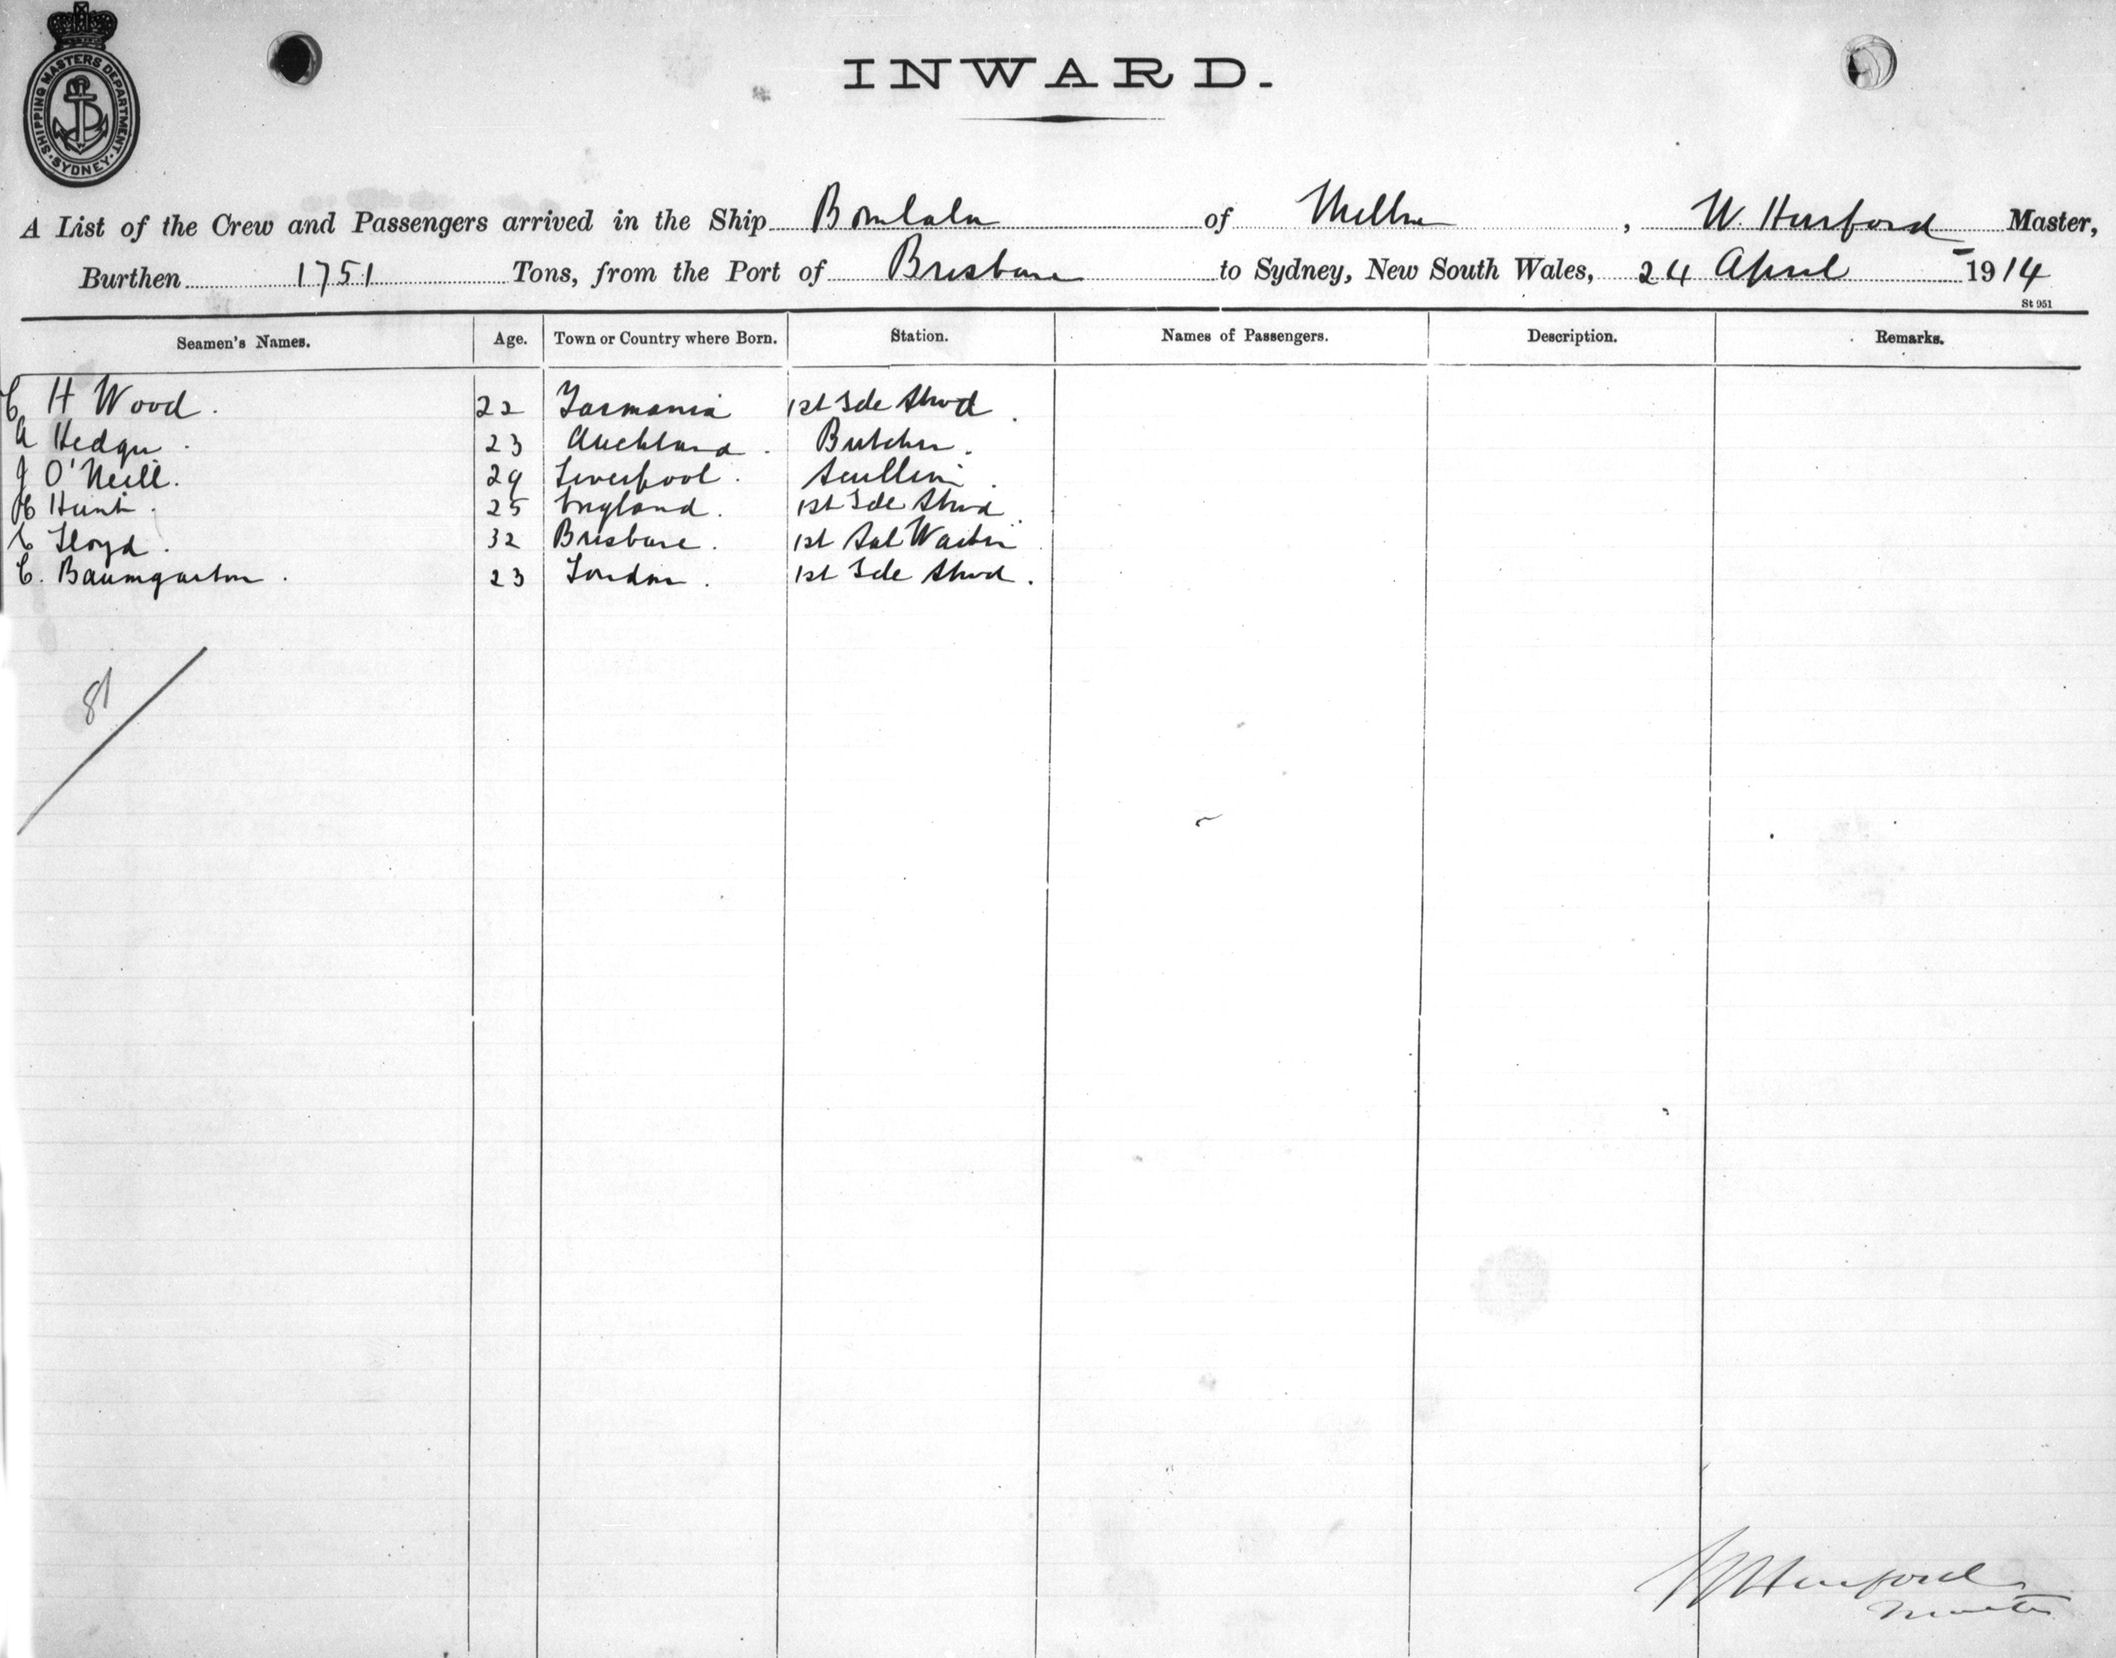 SHIPPING MASTERS DEPARTMENT. SYDNEY
INWARD.
A List of the Crew and Passengers arrived in the Ship Bombala of Melbne, W. Hurford Master,
Burthen 1751 Tons, from the Port of Brisbane to Sydney, New South Wales, 24 April 1914
St 951
Seamen's Names. Age. Town or Country where Born. Station. Names of Passengers. Description. Remarks.
C H Wood. 22 Tasmania 1st Sde Stwd.
A Hedger. 23 Auckland. Butcher.
J O'Neill. 29 Liverpool. Scullion.
H Hunt. 25 England. 1st Sde Stwd.
C Lloyd. 32 Brisbane. 1st Sal Waiter
C. Baumgarton. 23 London. 1st Sde Stwd.
81
W Hurford
Master